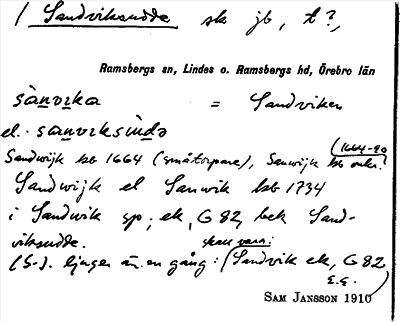 / Sandviksudde sk jb, t?,
Ramsbergs sn, Lindes o. Ramsbergs hd, Örebro län
sànvıka = Sandviken
el. sanvıksùdə
Sandwijk kb 1664 (småtorpare), Sanwijk kb 1664-90
Sandwijk el Sanwik kb 1734
i Sandwik sp; ek, G 82, bek Sand-
viksudde. skall vara:
(S-). ljuger än en gång: (Sandvik ek, G 82
E.E.
SAM JANSSON 1910